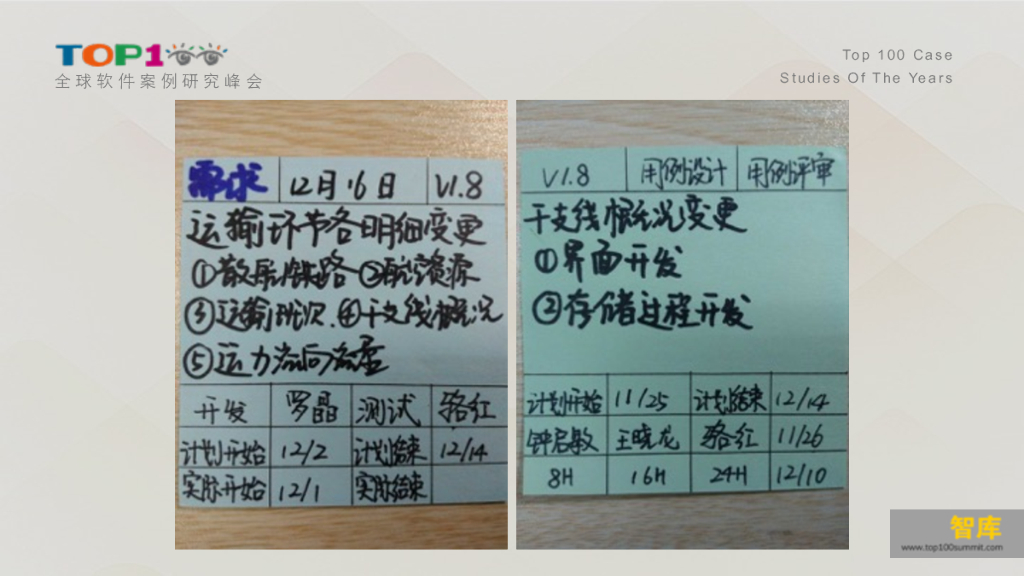 TOP100
全球软件案例研究峰会
Top 100 Case
Studies Of The Years
需求 12月16日 V1.8
运输环节各明细变更
①散杂铁路 ②航空资源
③运输班次 ④干支线概况
⑤运力流向流量
开发 罗晶 测试 骆红
计划开始 12/2 计划结束 12/14
实际开始 12/1 实际结束
V1.8 用例设计 用例评审
干支线概况变更
①界面开发
②存储过程开发
计划开始 11/25 计划结束 12/14
钟启敏 王晓龙 骆红 11/26
8H 16H 24H 12/10
智库
www.top100summit.com